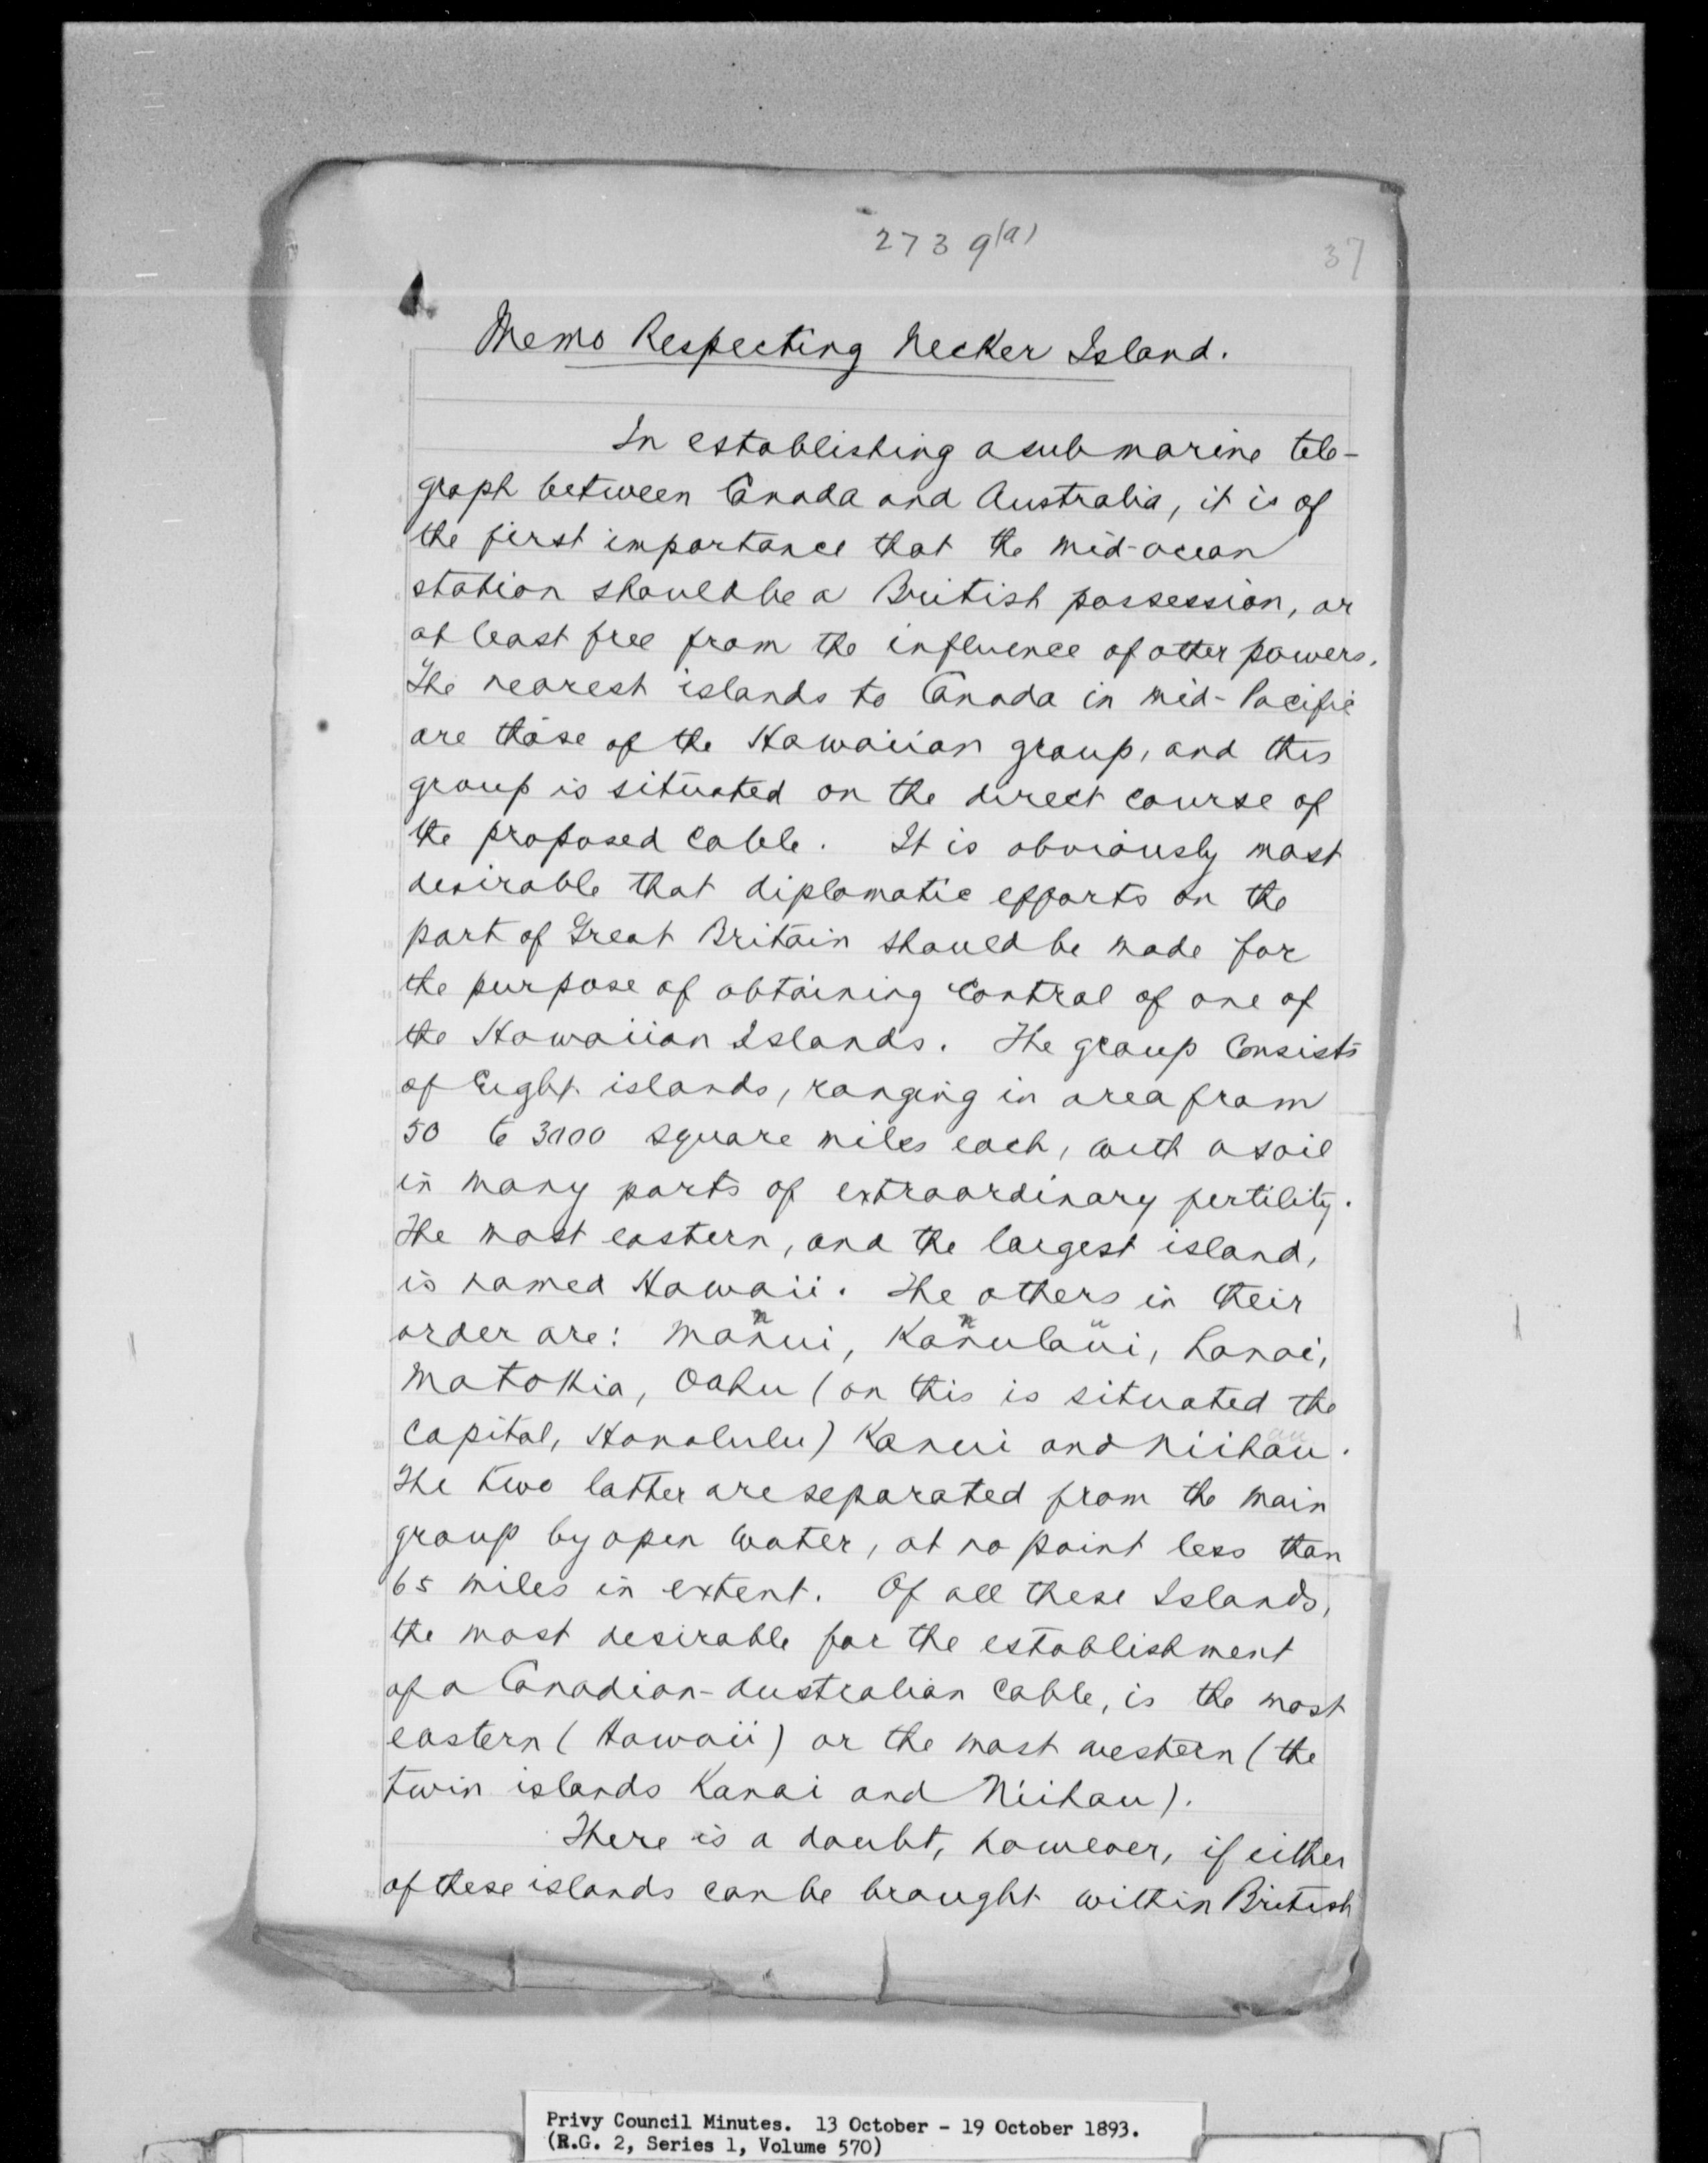 2739(a)
37
Memo Respecting Necker Island.
In establishing a submarine tele-
graph between Canada and Australia, it is of
the first importance that the mid-ocean
station should be a British possession, or
at least free from the influence of other powers.
The nearest islands to Canada in mid-Pacific
are those of the Hawaiian group, and this
group is situated on the direct course of
the proposed cable. It is obviously most
desirable that diplomatic efforts on the
part of Great Britain should be made for
the purpose of obtaining control of one of
the Hawaiian Islands. The group consists
of Eight islands, ranging in area from
50 to 3000 square miles each, with a soil
in many parts of extraordinary fertility.
The most eastern, and the largest island,
is named Hawaii. The others in their
order are: Manui, Kanulaui, Lanai,
Matokia, Oahu (on this is situated the
Capital, Honolulu) Kanui and Niihau.
The two latter are separated from the main
group by open water, at no point less than
65 miles in extent. Of all these Islands,
the most desirable for the establishment
of a Canadian-Australian Cable, is the most
eastern (Hawaii) or the most western (the
twin islands Kanai and Niihau).
There is a doubt, however, if either
of these islands can be brought within British
Privy Council Minutes. 13 October - 19 October 1893.
(R.G. 2, Series 1, Volume 570)